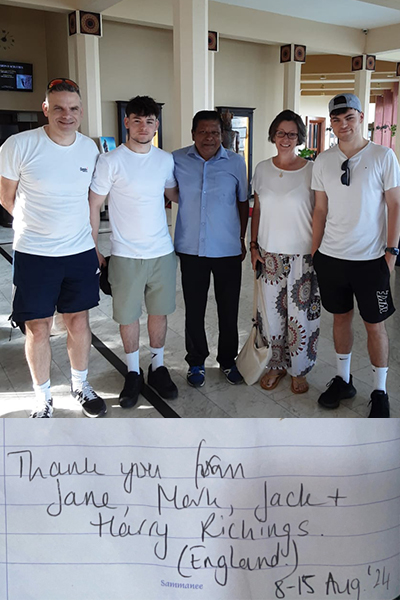 Thank you from
Jane, Mark, Jack +
Harry Richings.
(England.)
Sammanee
8-15 Aug '24